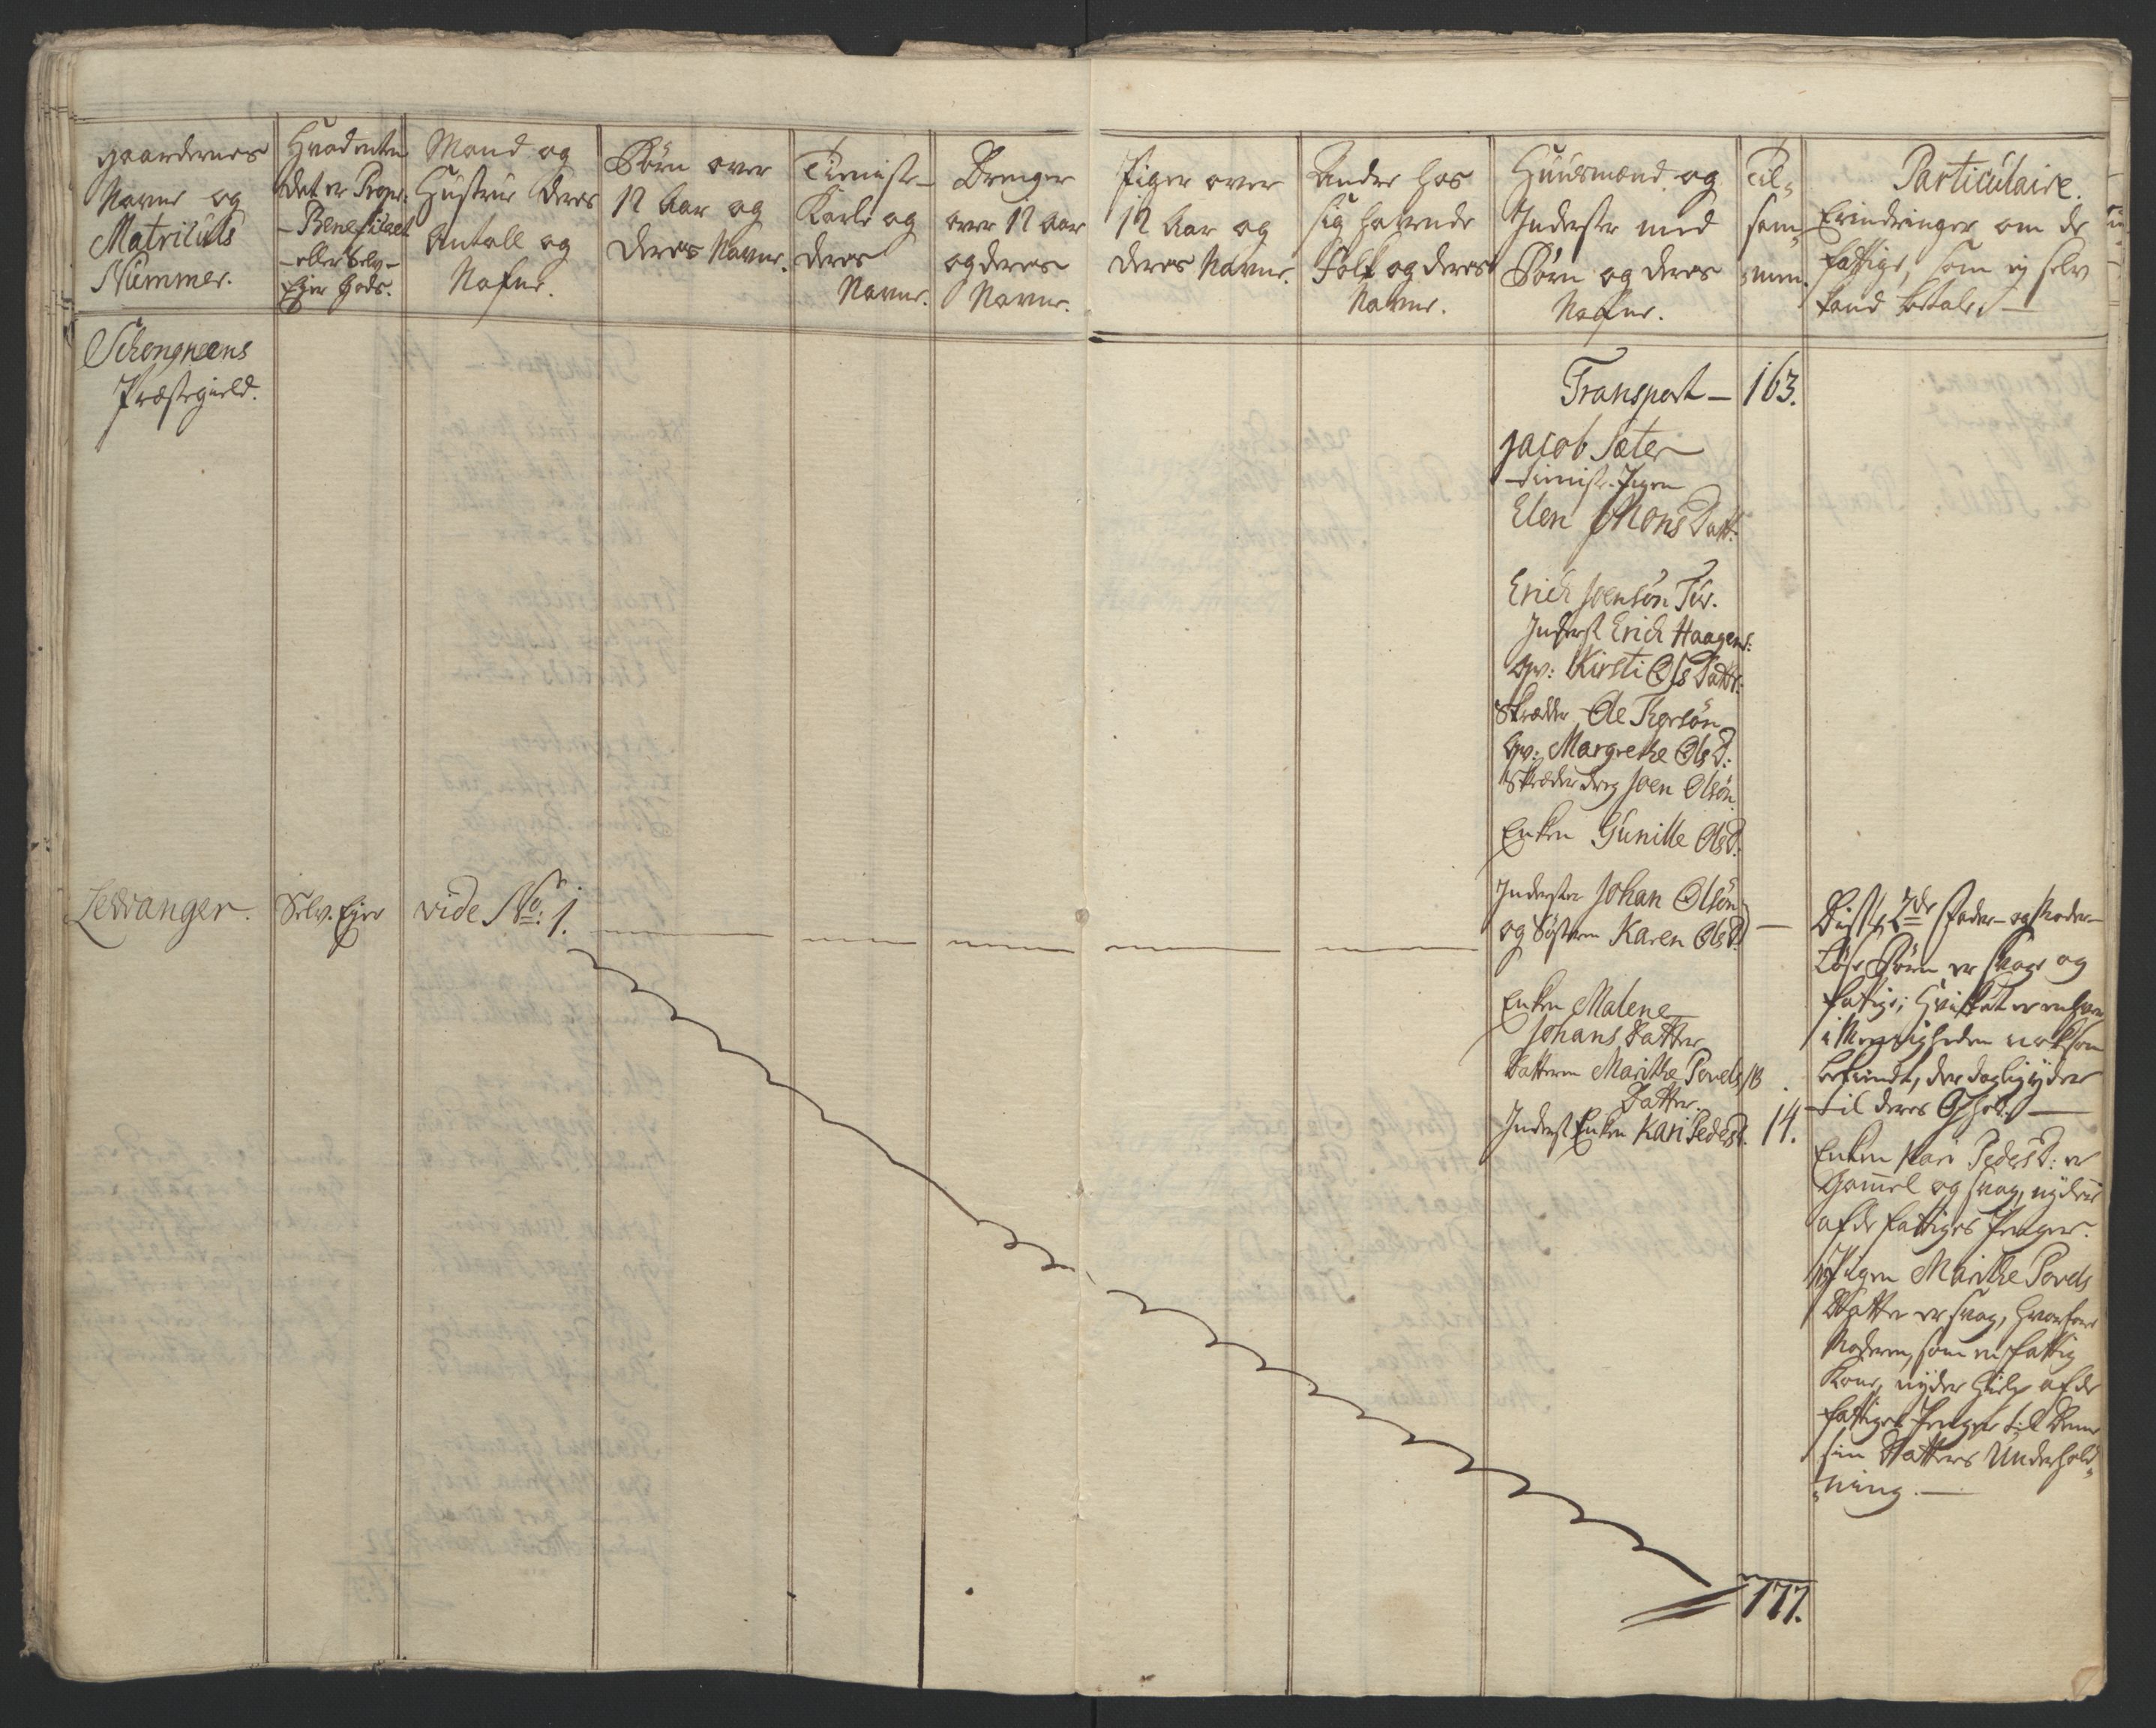 gaardernes
Navne og
Matriculs
Nummer.
Hvad enten
det er Propr:
- Beneficeret
- eller Selv-
Ejer gods.
Mand og
Hustrue deres
Antall og
Nafne.
Børn over
12 Aar og
deres Navne.
Tieniste-
Karle og
deres
Navne.
Drenger
over 12 aar
og deres
Navne.
Piger over
12 Aar og
deres Navne.
Andre hos
sig havende
Folk og deres
Navne.
Huusmænd og
Inderster med
Børn og deres
Nafne.
Til-
sam-
men.
Particulaire.
Erindringer om de
fattige, som ej selv
kand betale. —
Schongneens
Præstegield.
Transport — 163.
Jacob Sæter
tienist-Pigen
Elen Mons Datt:
Erich Joensøn Tür.
Inderst Erich Haagens:
qv: Kirsti Ols Datt:
Skrædder Ole Thorsøn
qv: Margrethe Ols D:
Skræder dreng Joen Olsøn
Enken Gunille Ols D:
Levanger.
Selv-Ejer
vide No: 1.
Inderster Johan Olsøn
og Søsteren Karen Ols D: —
Enken Malene
Johans Datter
Datteren Marithe Povels
Datter.
Inderst Enken Kari Peders D. 14.
Disse 2de Fader- og Moder-
Løse Børn er svage og
fatige; hvilket er enhver
i Menigheden noksom
bekiendt, der daglig yder
til deres Ophold. —
Enken Kari Peders D: er
Gammel og svag, nyder
af de fattiges Penger.
Pigen Marithe Povels
Datter er svag, hvorfore
Moderen, som en fattig
Kone, nyder hielp af de
fattiges Penger til denne
sin Datters Underhold-
ning. —
177.